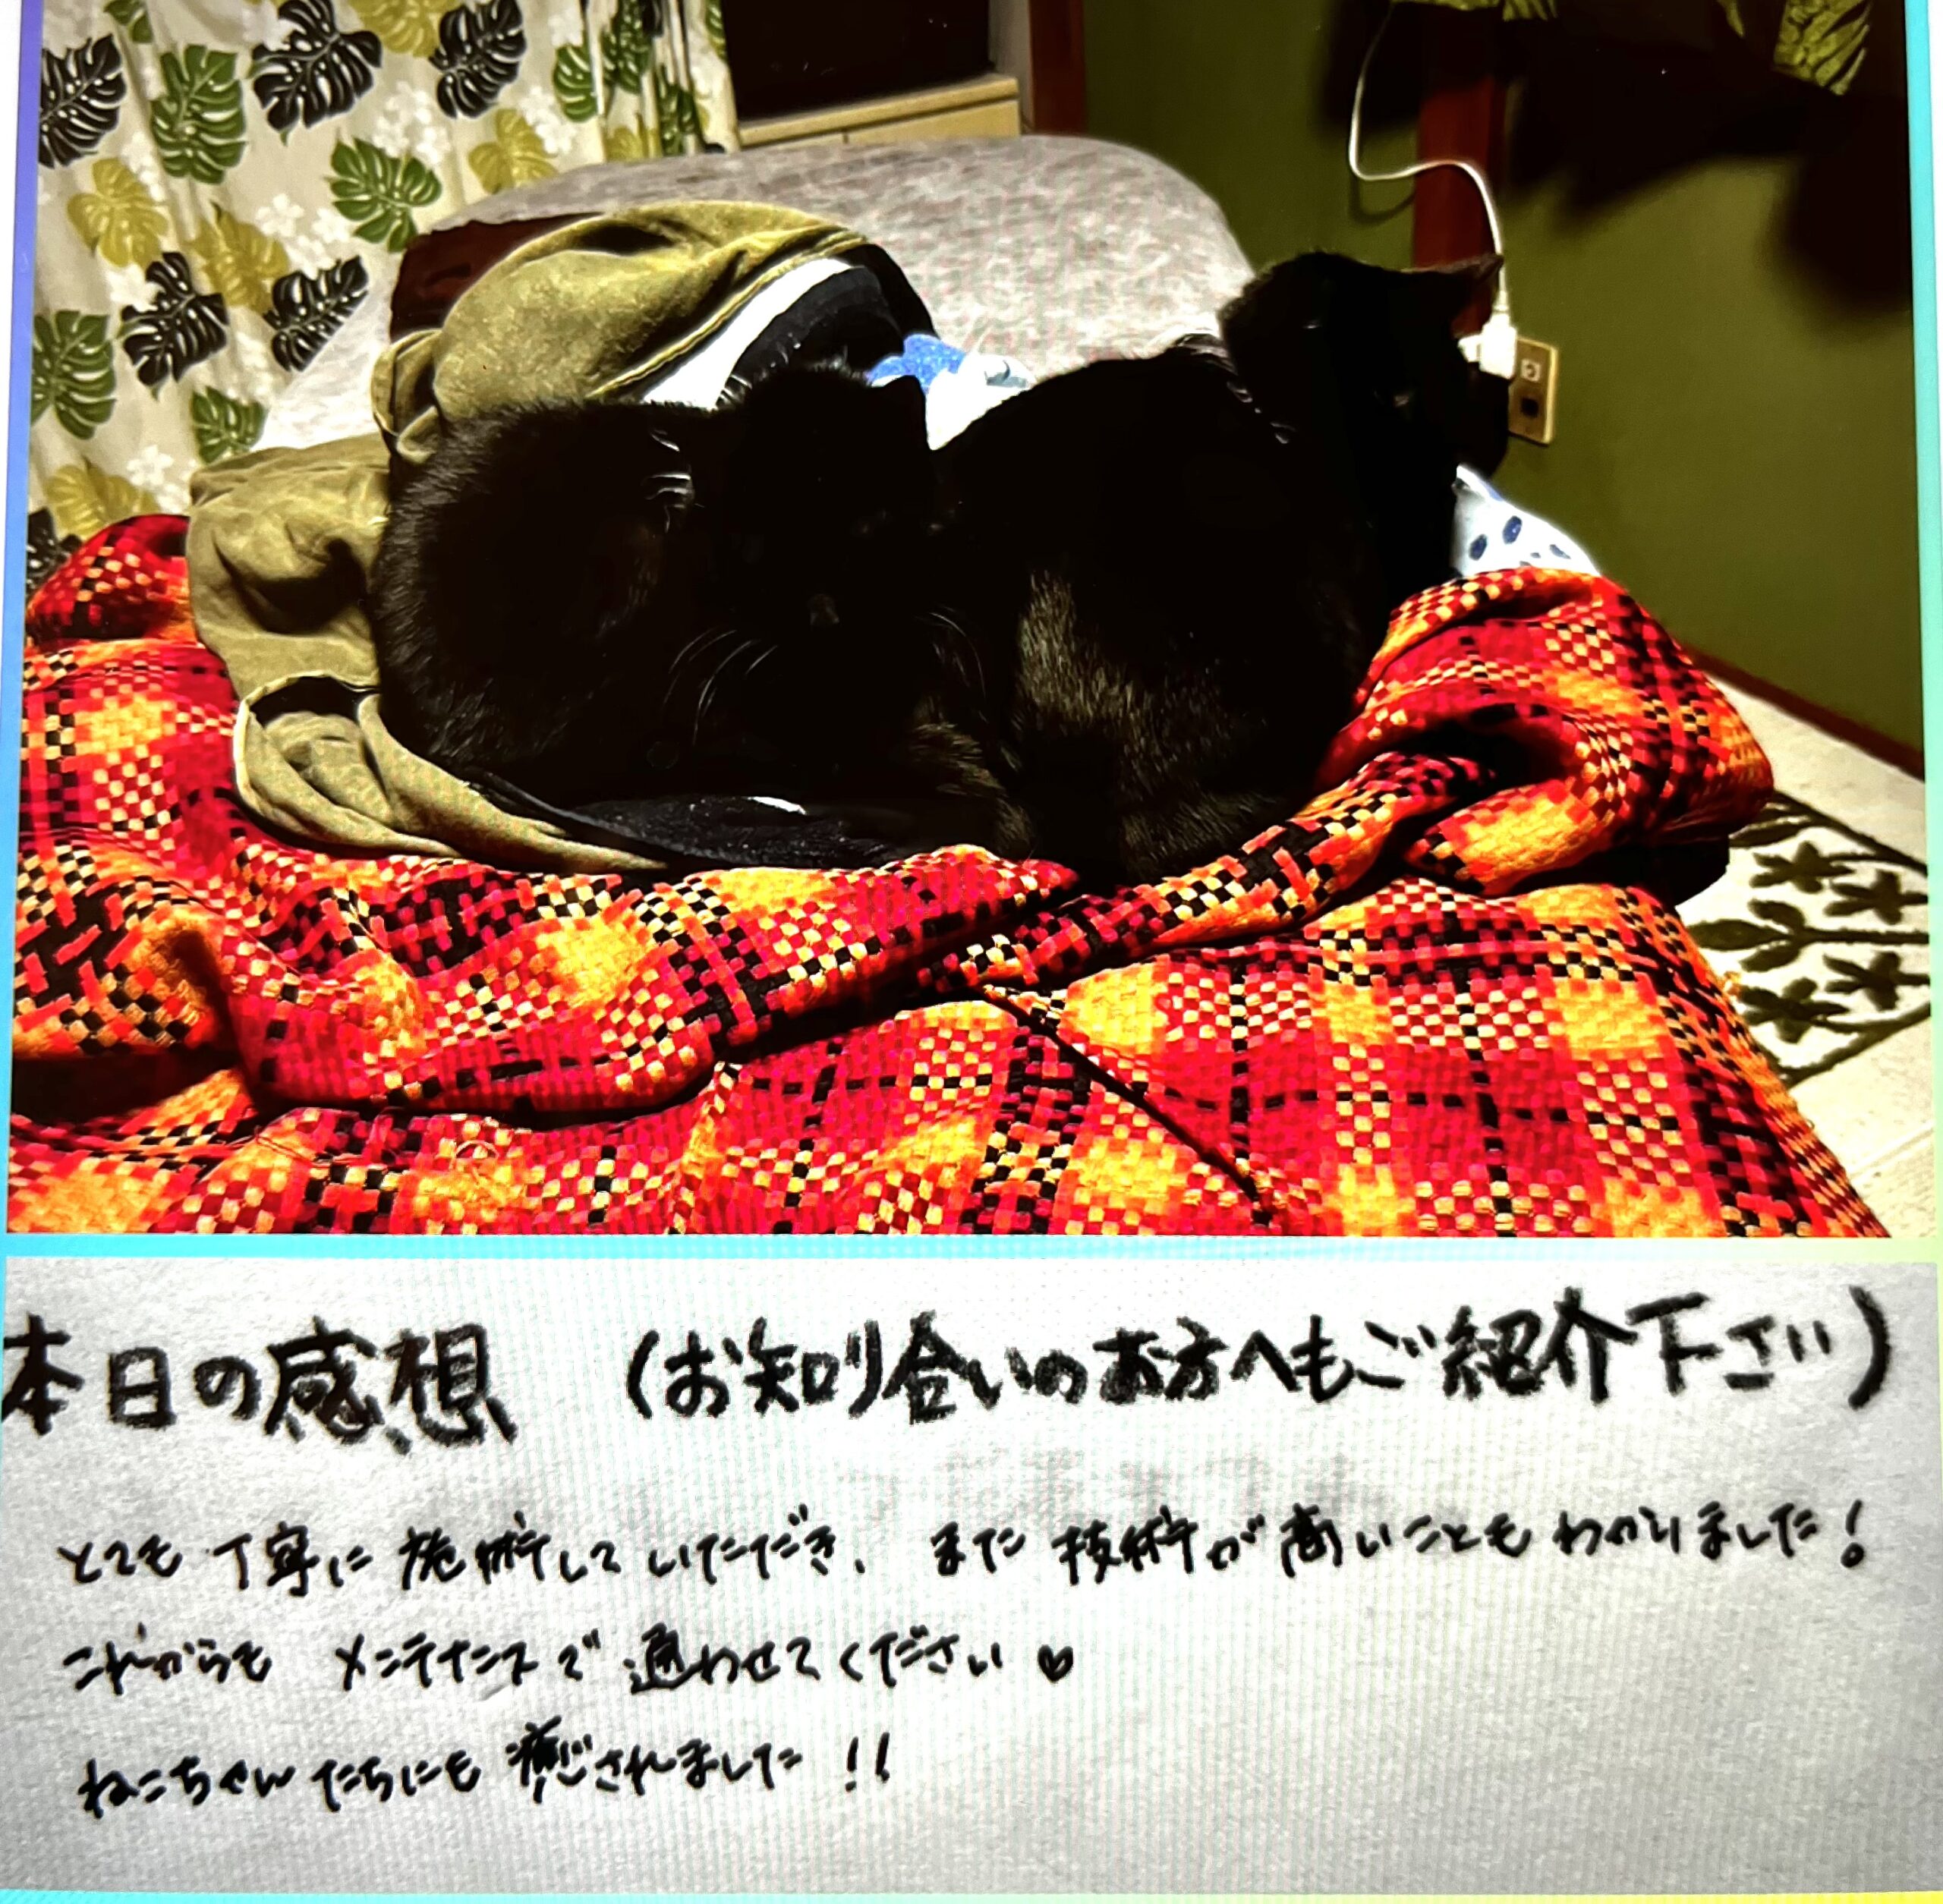 本日の感想 (お知り合いのお方へもご紹介下さい)
とても丁寧に施術していただき、また技術が高いこともわかりました!
これからもメンテナンスで通わせてください♡
ねこちゃんたちにも癒されました!!